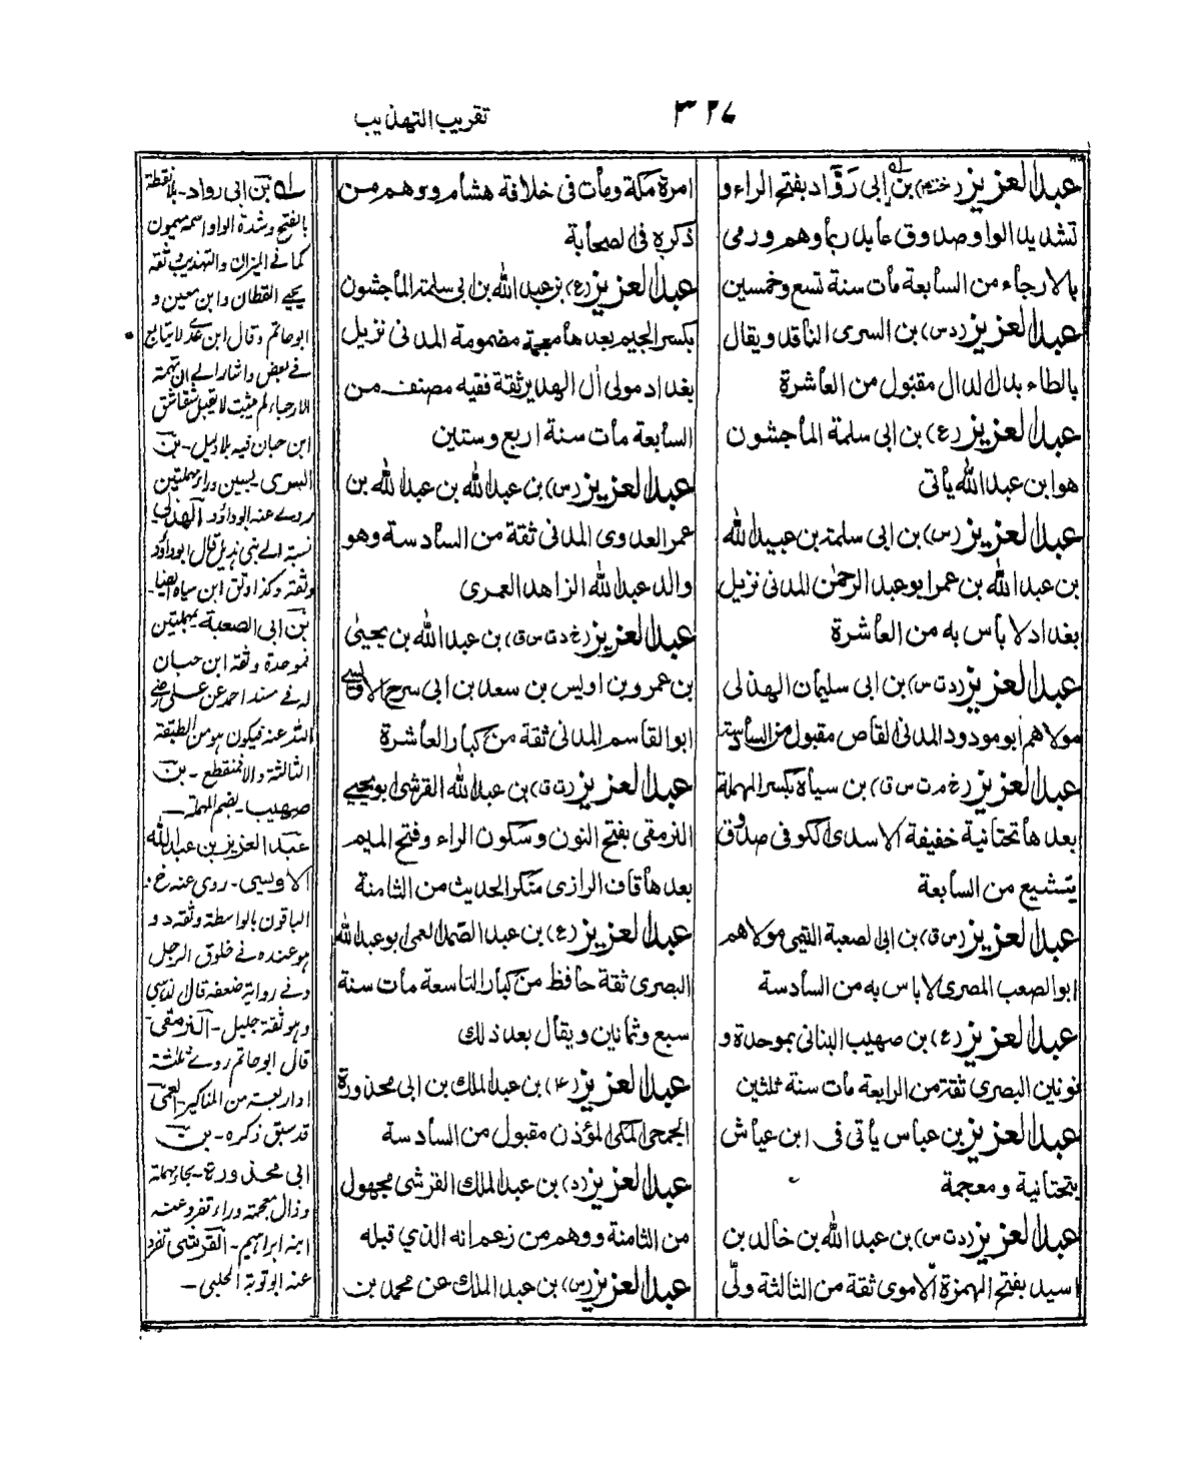 ٣٢٧
تقريب التهذيب
عبد العزيز (ختم) بن ابى رَوَّاد بفتح الراء و
تشديد الواو صدوق عابد ربما وهم ورمى
بالارجاء من السابعة مات سنة تسع وخمسين
عبد العزيز (دس) بن السرى الناقد ويقال
بالطاء بدل الدال مقبول من العاشرة
عبد العزيز (ع) بن ابى سلمة الماجشون
هو ابن عبد الله يأتى
عبد العزيز (س) بن ابى سلمة بن عبيد الله
بن عبد الله بن عمر ابو عبد الرحمٰن المدنى نزيل
بغداد لا بأس به من العاشرة
عبد العزيز (دت س) بن ابى سليمان الهذلى
مولاهم ابو مودود المدنى القاص مقبول من السادسة
عبد العزيز (خ م ت س ق) بن سياه بكسر المهملة
بعدها تحتانية خفيفة الاسدى الكوفى صدوق
يتشيع من السابعة
عبد العزيز (س ق) بن ابى الصعبة التيمى مولاهم
ابو الصعب المصرى لا باس به من السادسة
عبد العزيز (ع) بن صهيب البنانى بموحدة و
نونين البصرى ثقة من الرابعة مات سنة ثلثين
عبد العزيز بن عباس يأتى فى ابن عياش
بتحتانية ومعجمة
عبد العزيز (دت س) بن عبد الله بن خالد بن
اسيد بفتح الهمزة الاموى ثقة من الثالثة ولّى
امرة مكة ومات فى خلافة هشام ووهم من
ذكره فى الصحابة
عبد العزيز (ع) بن عبد الله بن ابى سلمة الماجشون
بكسر الجيم بعدها معجمة مضمومة المدنى نزيل
بغداد مولى آل الهدير ثقة فقيه مصنف من
السابعة مات سنة اربع وستين
عبد العزيز (س) بن عبد الله بن عبد الله بن
عمر العدوى المدنى ثقة من السادسة وهو
والد عبد الله الزاهد العمرى
عبد العزيز (خ دت س ق) بن عبد الله بن يحيىٰ
بن عمرو بن اويس بن سعد بن ابى سرح الاويسى
ابو القاسم المدنى ثقة من كبار العاشرة
عبد العزيز (ت ق) بن عبد الله القرشى ابو يحيى
النرمقى بفتح النون وسكون الراء وفتح الميم
بعدها قاف الرازى منكر الحديث من الثامنة
عبد العزيز (ع) بن عبد الصمد العمى ابو عبد الله
البصرى ثقة حافظ من كبار التاسعة مات سنة
سبع وثمانين ويقال بعد ذلك
عبد العزيز (ع) بن عبد الملك بن ابى محذورة
الجمحى المكى المؤذن مقبول من السادسة
عبد العزيز (د) بن عبد الملك القرشى مجهول
من الثامنة ووهم من زعم انه الذي قبله
عبد العزيز (س) بن عبد الملك عن محمد بن
له بن ابى رواد - بلا نقطة
بالفتح وشدة الواو اسمه ميمون
كما فى الميزان والتهذيب وثقه
يحيى القطان وابن معين و
ابو حاتم وقال ابن عدى لا يتابع
فى بعض واشار الى ان تهمة
الارجاء لم يثبت لا تقبل
ابن حبان فيه بلا دليل - بن
السرى بسين وراء مهملتين
روى عنه ابو داؤد الهذلى
نسبة الى بنى هذيل قال ابو داؤد
وثقه وكذا وثق ابن سياه ايضا -
بن ابى الصعبة بمهملتين
فموحدة وثقه ابن حبان
له فى مسند احمد عن على رضى
الله عنه فيكون هو من الطبقة
الثالثة والا فمنقطع - بن
صهيب - بضم المهملة -
عبد العزيز بن عبد الله
الاويسى - روى عنه خ
الباقون بالواسطة وثقه د و
هو عنده فى خلوق الرجل
وفى رواية ضعفه قال الذهبى
وهو ثقة جليل - النرمقى
قال ابو حاتم روى ثلثة
او اربعة من المناكير - العمى
قد سبق ذكره - بن
ابى محذورة - بحاء مهملة
وذال معجمة وراء تفرد عنه
ابنه ابراهيم - القرشى تفرد
عنه ابو توبة الحلبى -